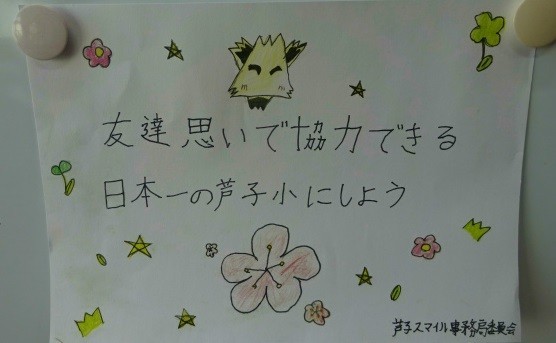 友達思いで協力できる
日本一の芦子小にしよう
芦子スマイル事務局委員会